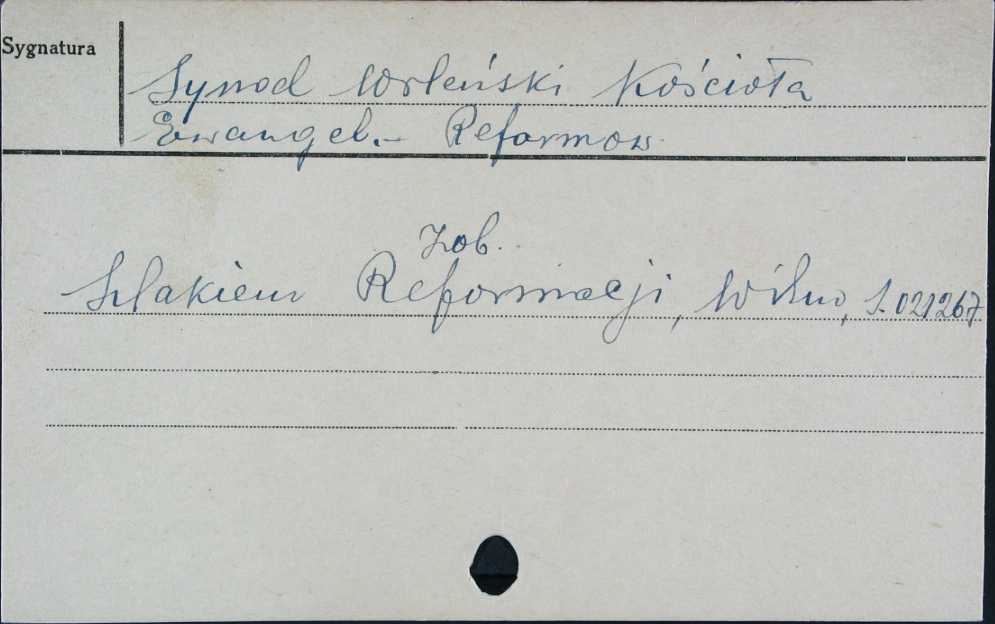 Sygnatura
Synod Wileński Kościoła
Ewangel.- Reformow.
Zob.
Szlakiem Reformacji, Wilno, S. 021267